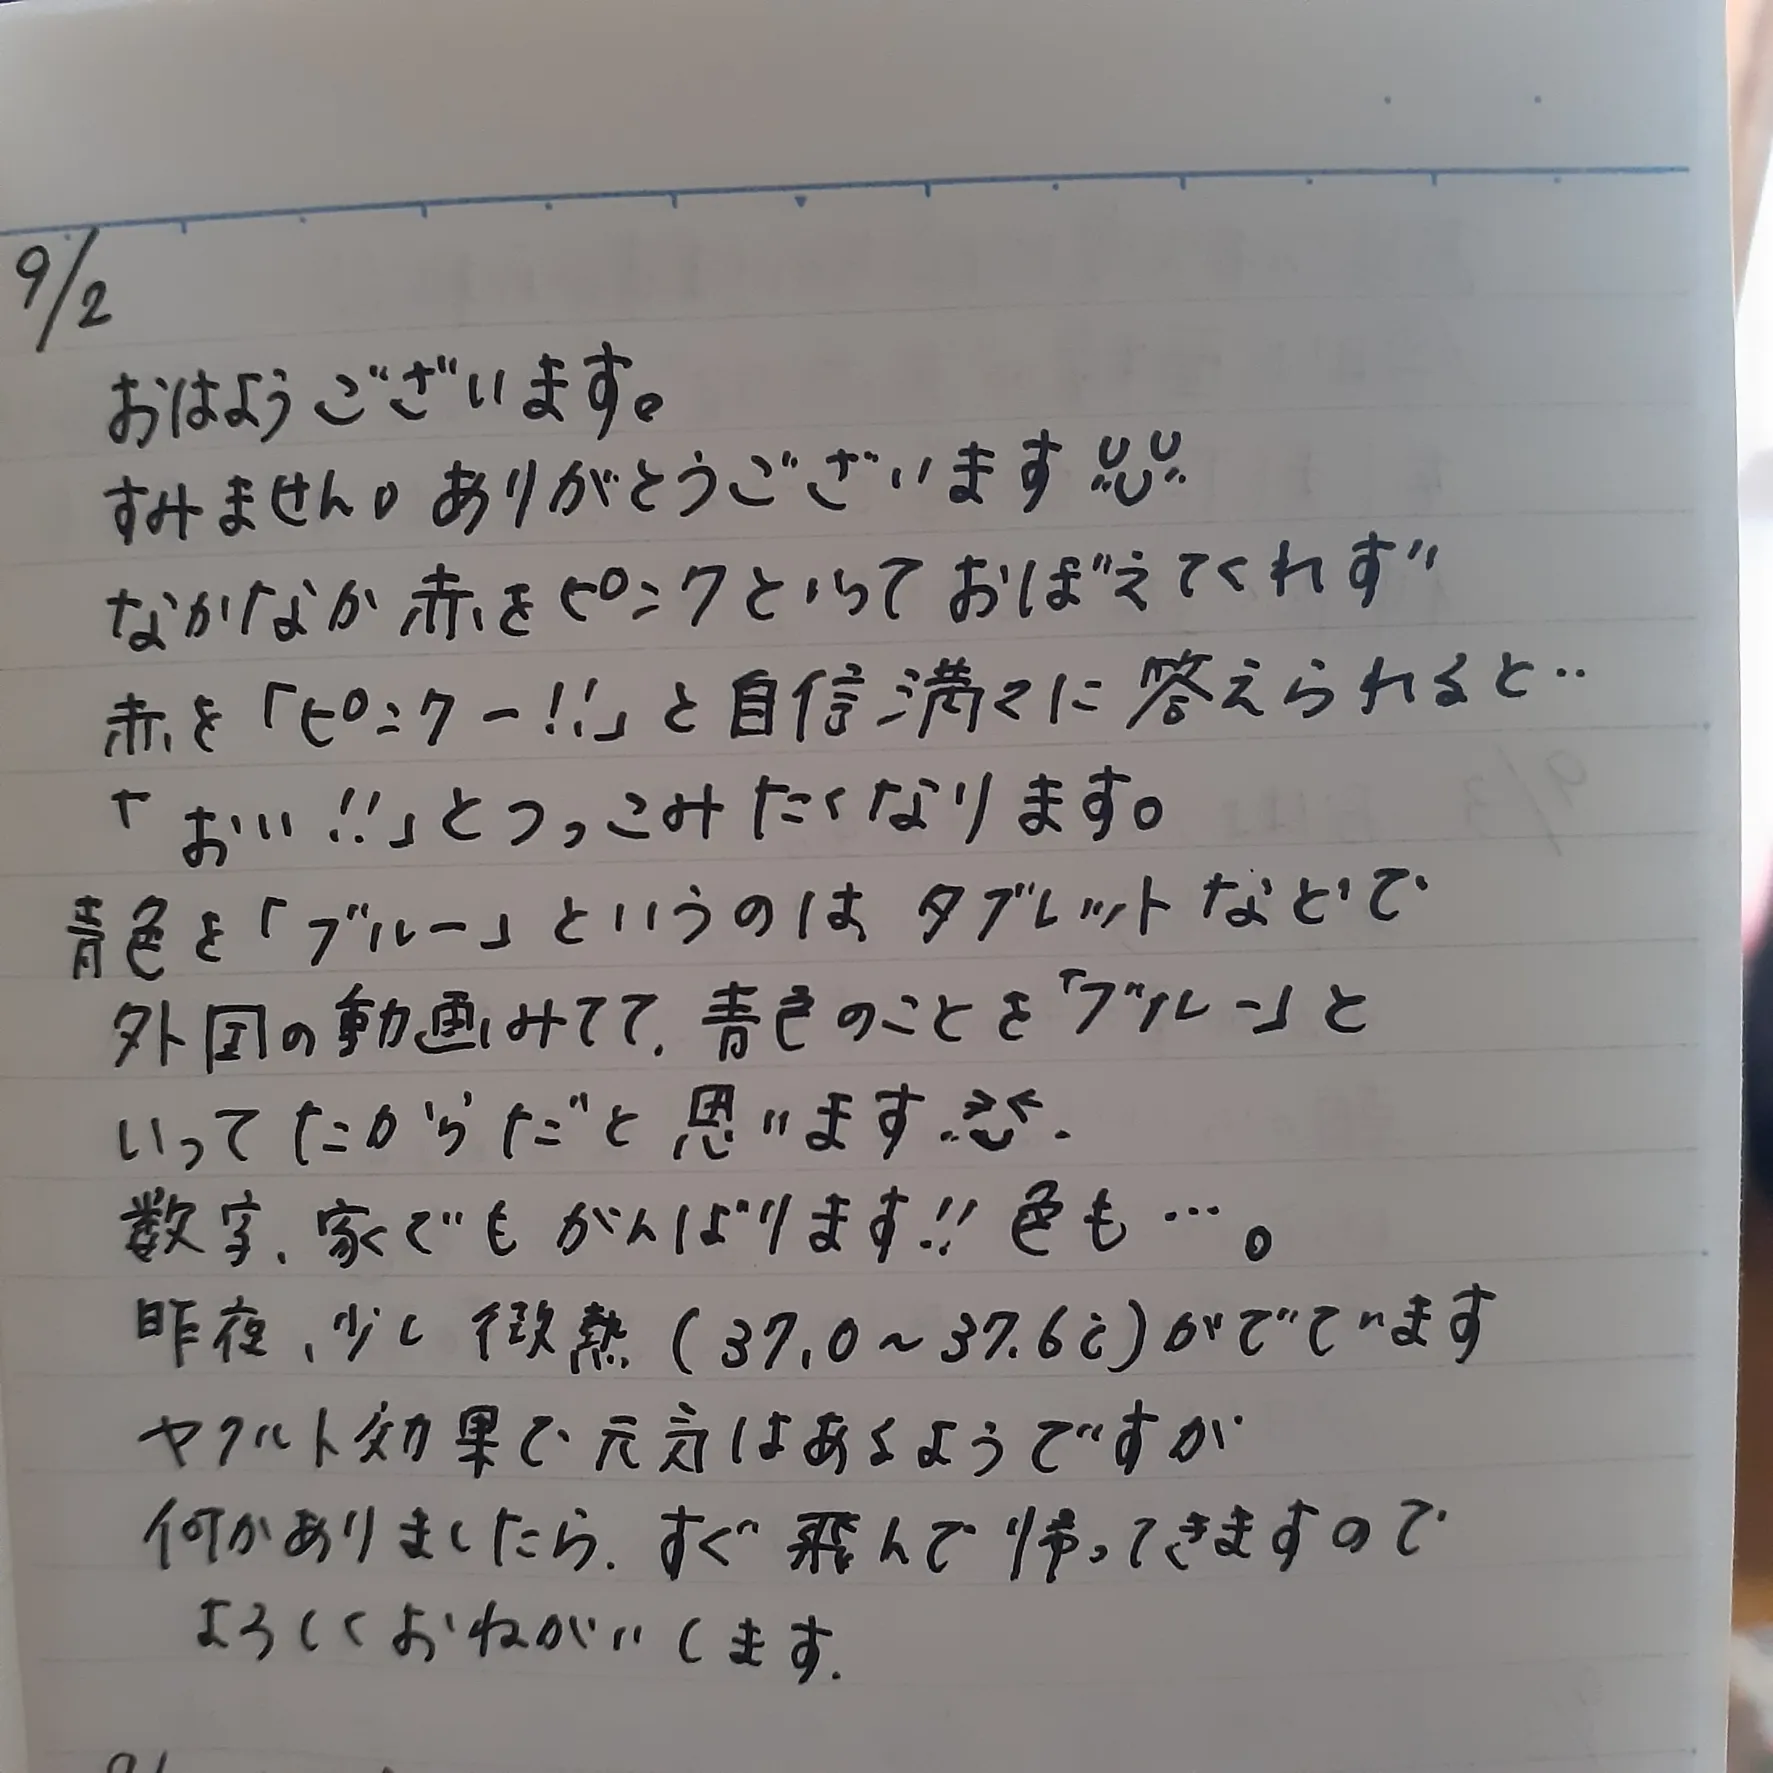 9/2
おはようございます。
すみません。ありがとうございます
なかなか赤をピンクといっておぼえてくれず
赤を「ピンクー!!」と自信満々に答えられると‥
「おい!!」とつっこみたくなります。
青色を「ブルー」というのは、タブレットなどで
外国の動画みてて、青色のことを「ブルー」と
いってたからだと思います
数字、家でもがんばります!!色も…。
昨夜、少し微熱(37.0~37.6℃)がでています
ヤクルト効果で元気はあるようですが
何かありましたら、すぐ飛んで帰ってきますので
よろしくおねがいします.
9/3